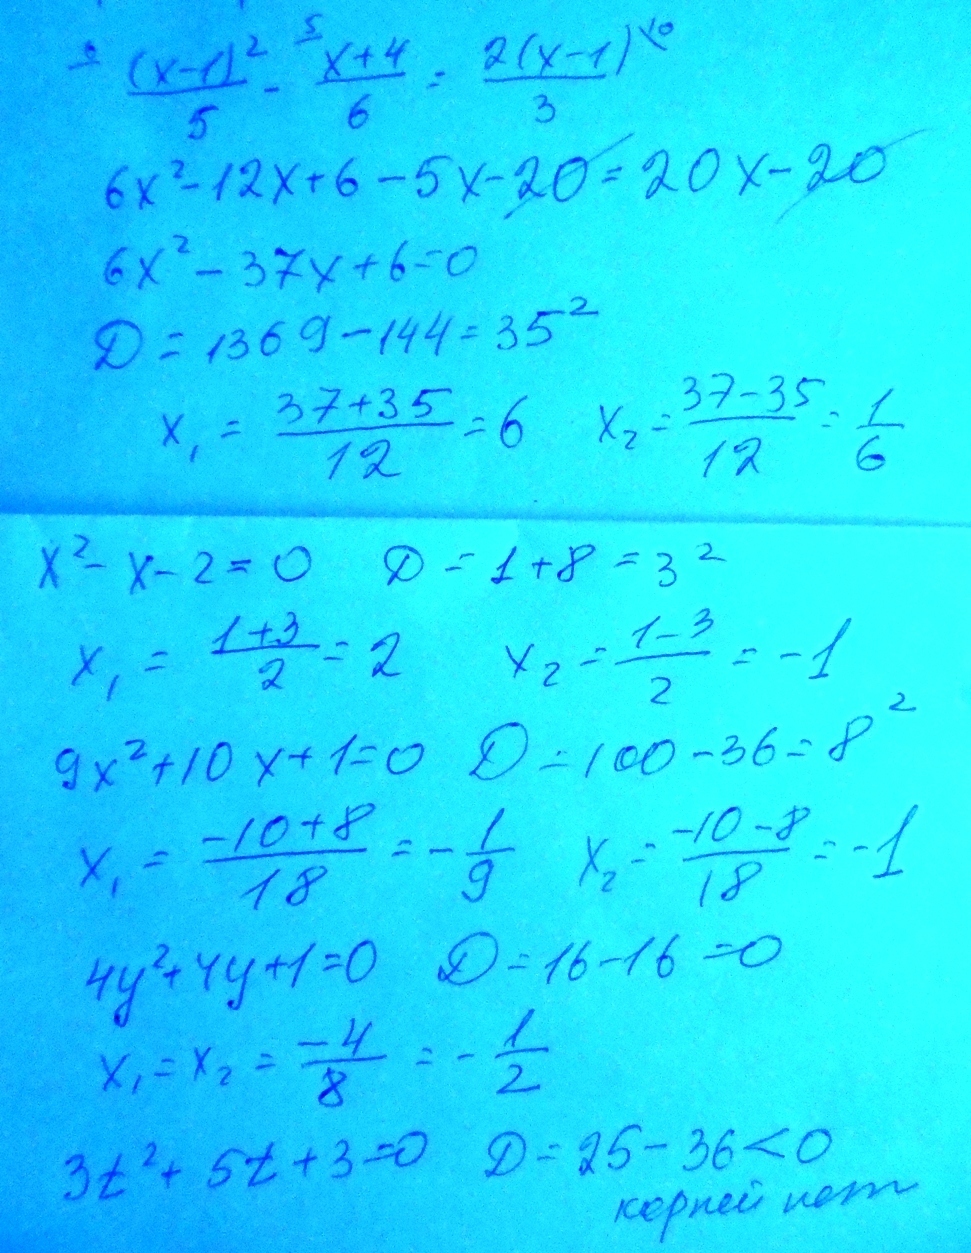 6 (x-1)²/5 - 5 x+4/6 = 2(x-1)/3 \10
6x²-12x+6-5x-20=20x-20
6x²-37x+6=0
D=1369-144=35²
x₁=37+35/12=6 x₂=37-35/12=1/6
x²-x-2=0 D=1+8=3²
x₁=1+3/2=2 x₂=1-3/2=-1
9x²+10x+1=0 D=100-36=8²
x₁=-10+8/18=-1/9 x₂=-10-8/18=-1
4y²+4y+1=0 D=16-16=0
x₁=x₂=-4/8=-1/2
3t²+5t+3=0 D=25-36<0
корней нет